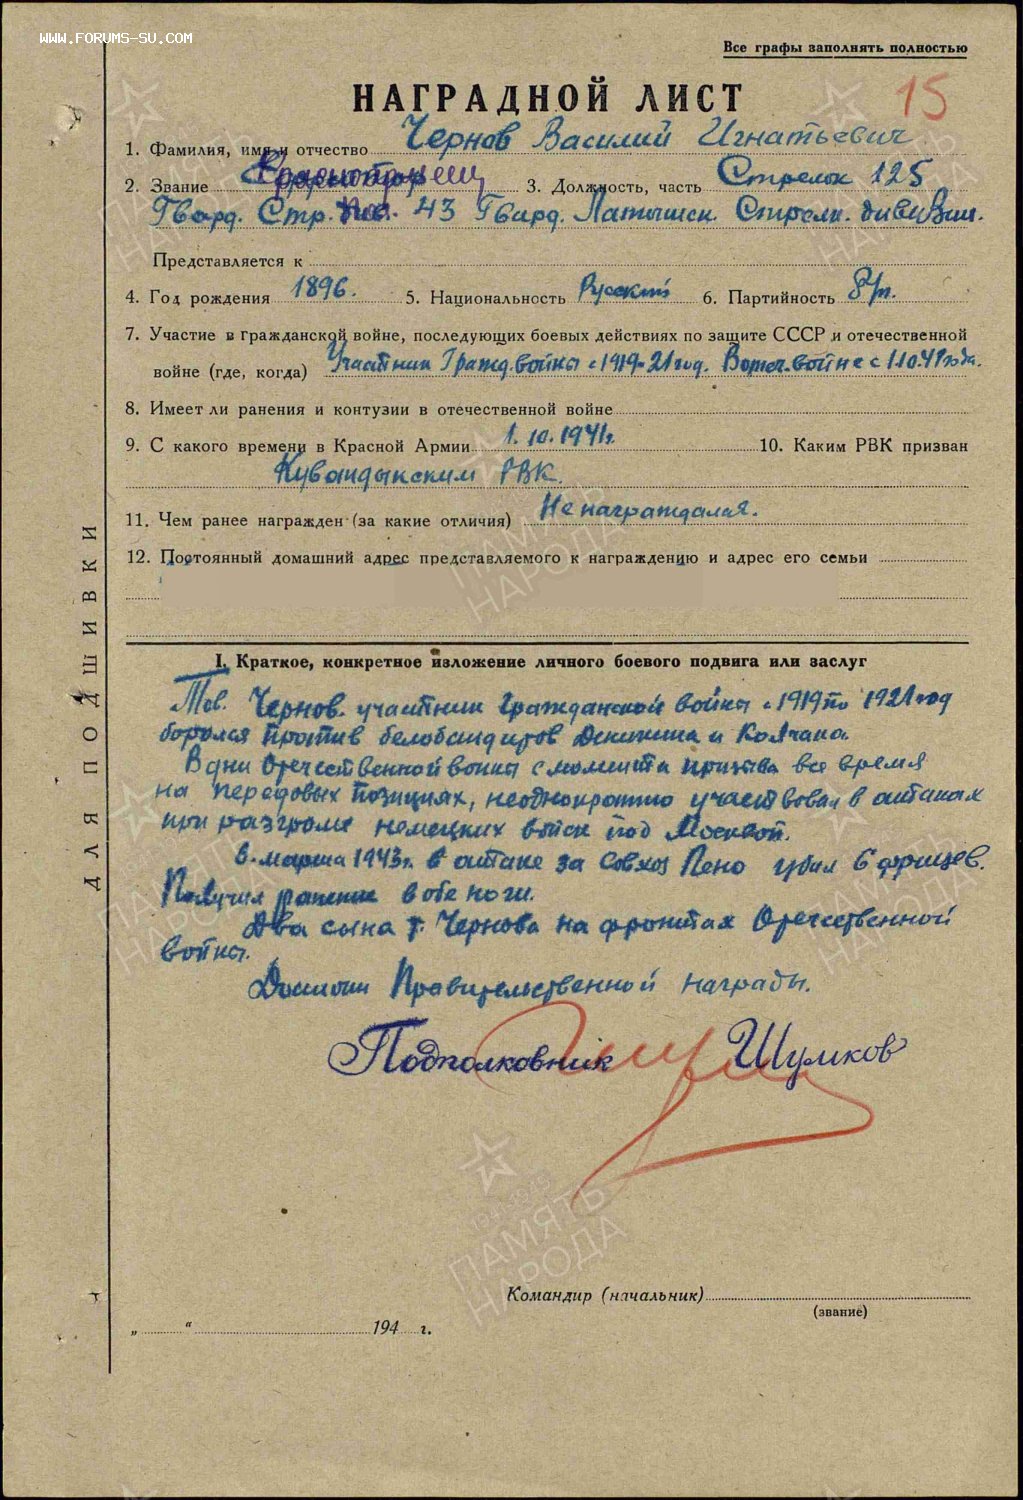 WWW.FORUMS-SU.COM
Все графы заполнять полностью
НАГРАДНОЙ ЛИСТ
15
1. Фамилия, имя и отчество Чернов Василий Игнатьевич
2. Звание Красноармеец 3. Должность, часть Стрелок 125
Гвард. Стр. Пол. 43 Гвард. Латышск. Стрелк. дивизии.
Представляется к
4. Год рождения 1896. 5. Национальность Русский 6. Партийность б/п.
7. Участие в гражданской войне, последующих боевых действиях по защите СССР и отечественной
войне (где, когда) Участник Гражд. войны с 1919-21 год. В отеч. войне с 1.10.41 года.
8. Имеет ли ранения и контузии в отечественной войне
9. С какого времени в Красной Армии 1.10.1941г. 10. Каким РВК призван
Кувандыкским РВК.
11. Чем ранее награжден (за какие отличия) Не награждался.
12. Постоянный домашний адрес представляемого к награждению и адрес его семьи
I. Краткое, конкретное изложение личного боевого подвига или заслуг
Тов. Чернов участник Гражданской войны с 1919 по 1921 год
боролся против белобандитов Деникина и Колчака.
В дни Отечественной войны с момента призыва все время
на передовых позициях, неоднократно участвовал в атаках
при разгроме немецких войск под Москвой.
В марте 1943г. в атаке за совхоз Пено убил 6 фрицев.
Получил ранение в обе ноги.
Два сына т. Чернова на фронтах Отечественной
войны.
Достоин Правительственной награды.
Подполковник Шумков
Командир (начальник)
(звание)
„ “ 194 г.
ДЛЯ ПОДШИВКИ
ПАМЯТЬ
НАРОДА
1941-1945